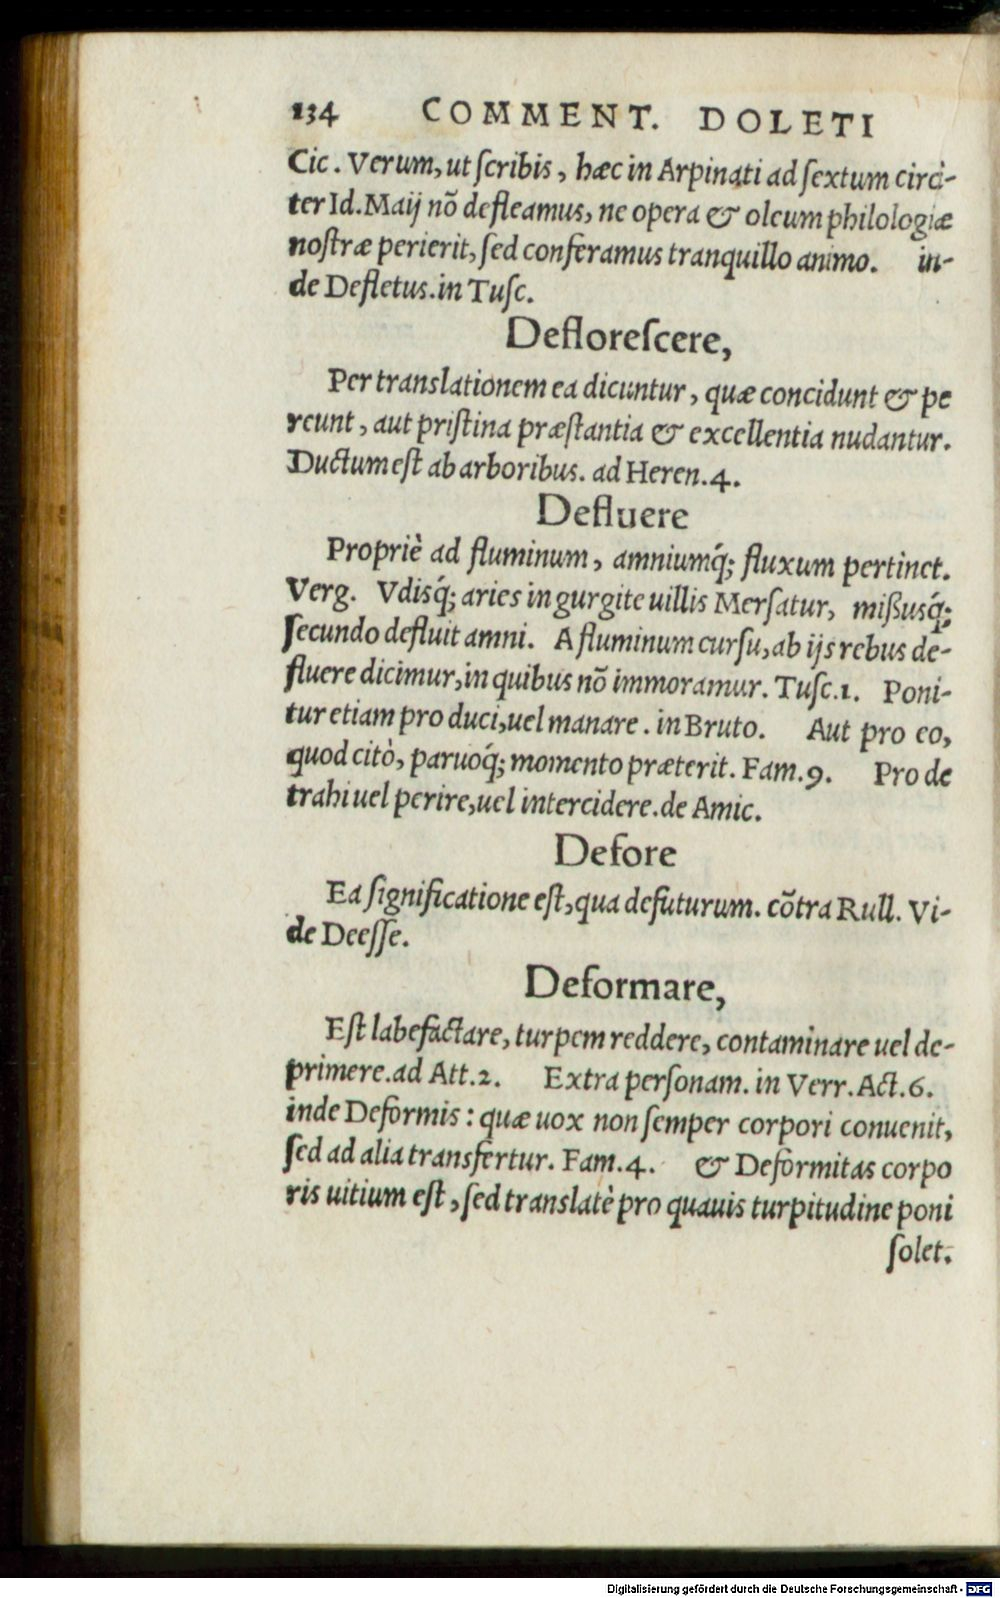 134 COMMENT. DOLETI
Cic. Verum, ut scribis, hæc in Arpinati ad sextum circi-
ter Id. Maij nõ defleamus, ne opera & oleum philologiæ
nostræ perierit, sed conferamus tranquillo animo. in-
de Defletus. in Tusc.
Deflorescere,
Per translationem ea dicuntur, quæ concidunt & pe
reunt, aut pristina præstantia & excellentia nudantur.
Ductum est ab arboribus. ad Heren. 4.
Defluere
Propriè ad fluminum, amniumq́; fluxum pertinet.
Verg. Vdisq́; aries in gurgite uillis Mersatur, mißusq́;
secundo defluit amni. A fluminum cursu, ab ijs rebus de-
fluere dicimur, in quibus nõ immoramur. Tusc. 1. Poni-
tur etiam pro duci, uel manare. in Bruto. Aut pro eo,
quod citò, paruoq́; momento præterit. Fam. 9. Pro de
trahi uel perire, uel intercidere. de Amic.
Defore
Ea significatione est, qua defuturum. cõtra Rull. Vi-
de Deesse.
Deformare,
Est labefactare, turpem reddere, contaminare uel de-
primere. ad Att. 2. Extra personam. in Verr. Act. 6.
inde Deformis: quæ uox non semper corpori conuenit,
sed ad alia transfertur. Fam. 4. & Deformitas corpo
ris uitium est, sed translatè pro quauis turpitudine poni
solet.
Digitalisierung gefördert durch die Deutsche Forschungsgemeinschaft - DFG